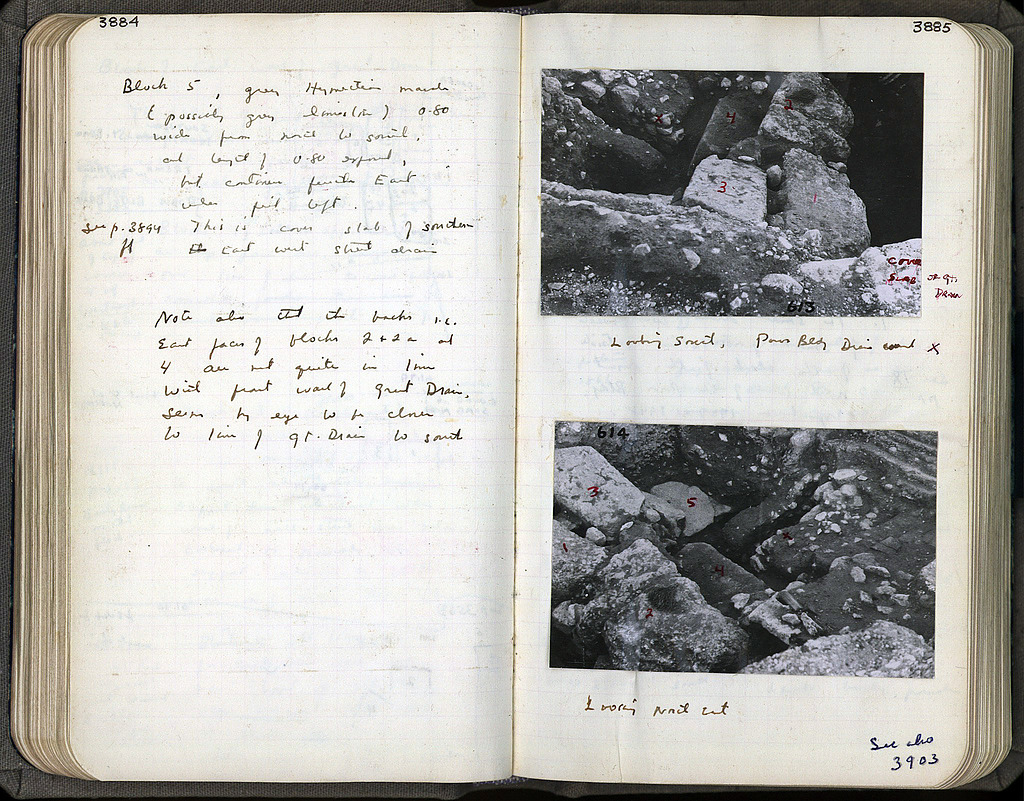 3884
Block 5, grey Hymettian marble
(possibly grey limestone) 0.80
wide from north to south,
and length of 0.80 exposed,
but continues further East
under
See p. 3894 This is cover slab of southern
ff East west street drain
Note also that the backs i.e.
East faces of blocks 2 + 2a and
4 are not quite in line
with west wall of Great Drain,
seems by eye to be closer
to line of Gt. Drain to south
3885
2
4
x
3
1
COVER
SLAB OF Gt.
DRAIN
613
Looking South, Poros Bldg Drain x
614
3
5
1
x
4
2
Looking North East
See also
3903